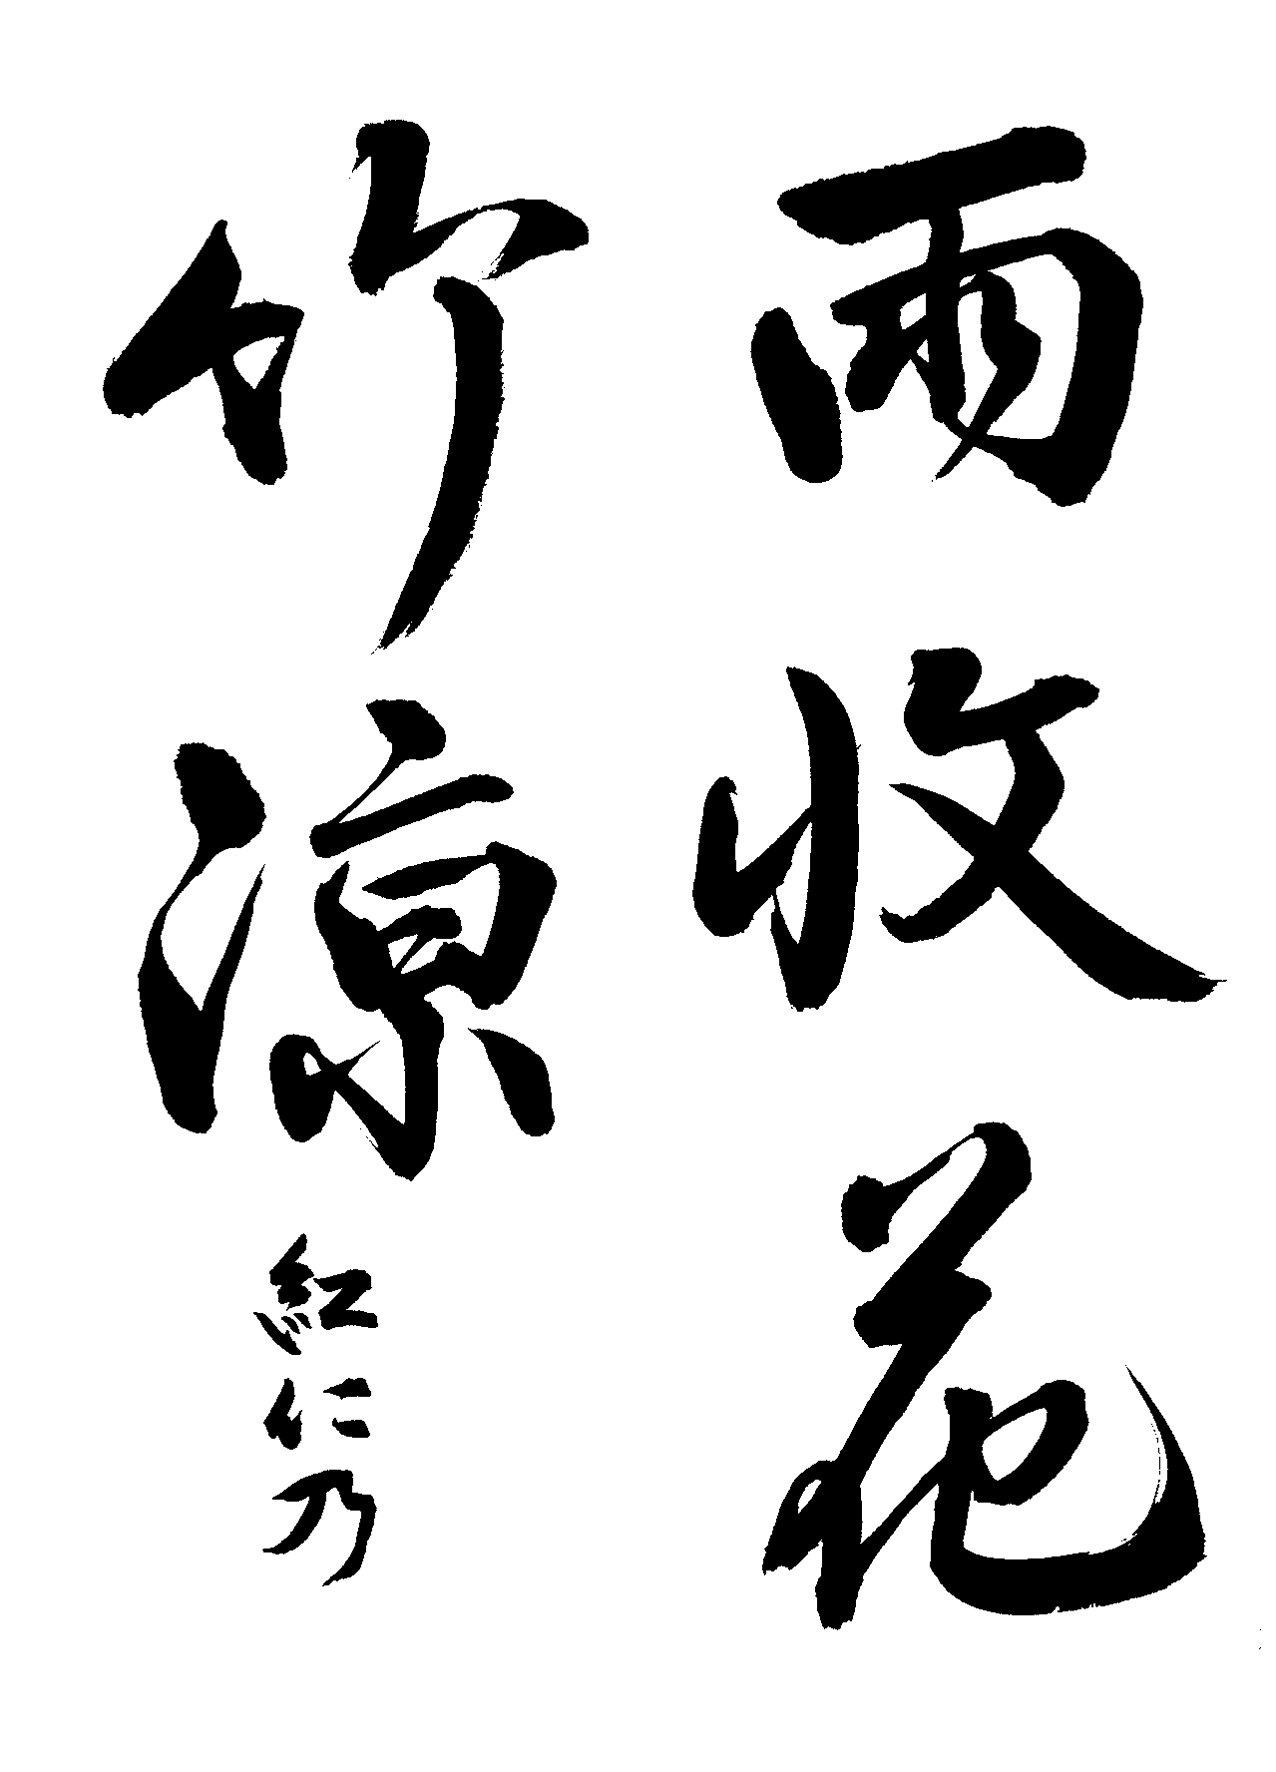 雨收花
竹涼
紅仁乃